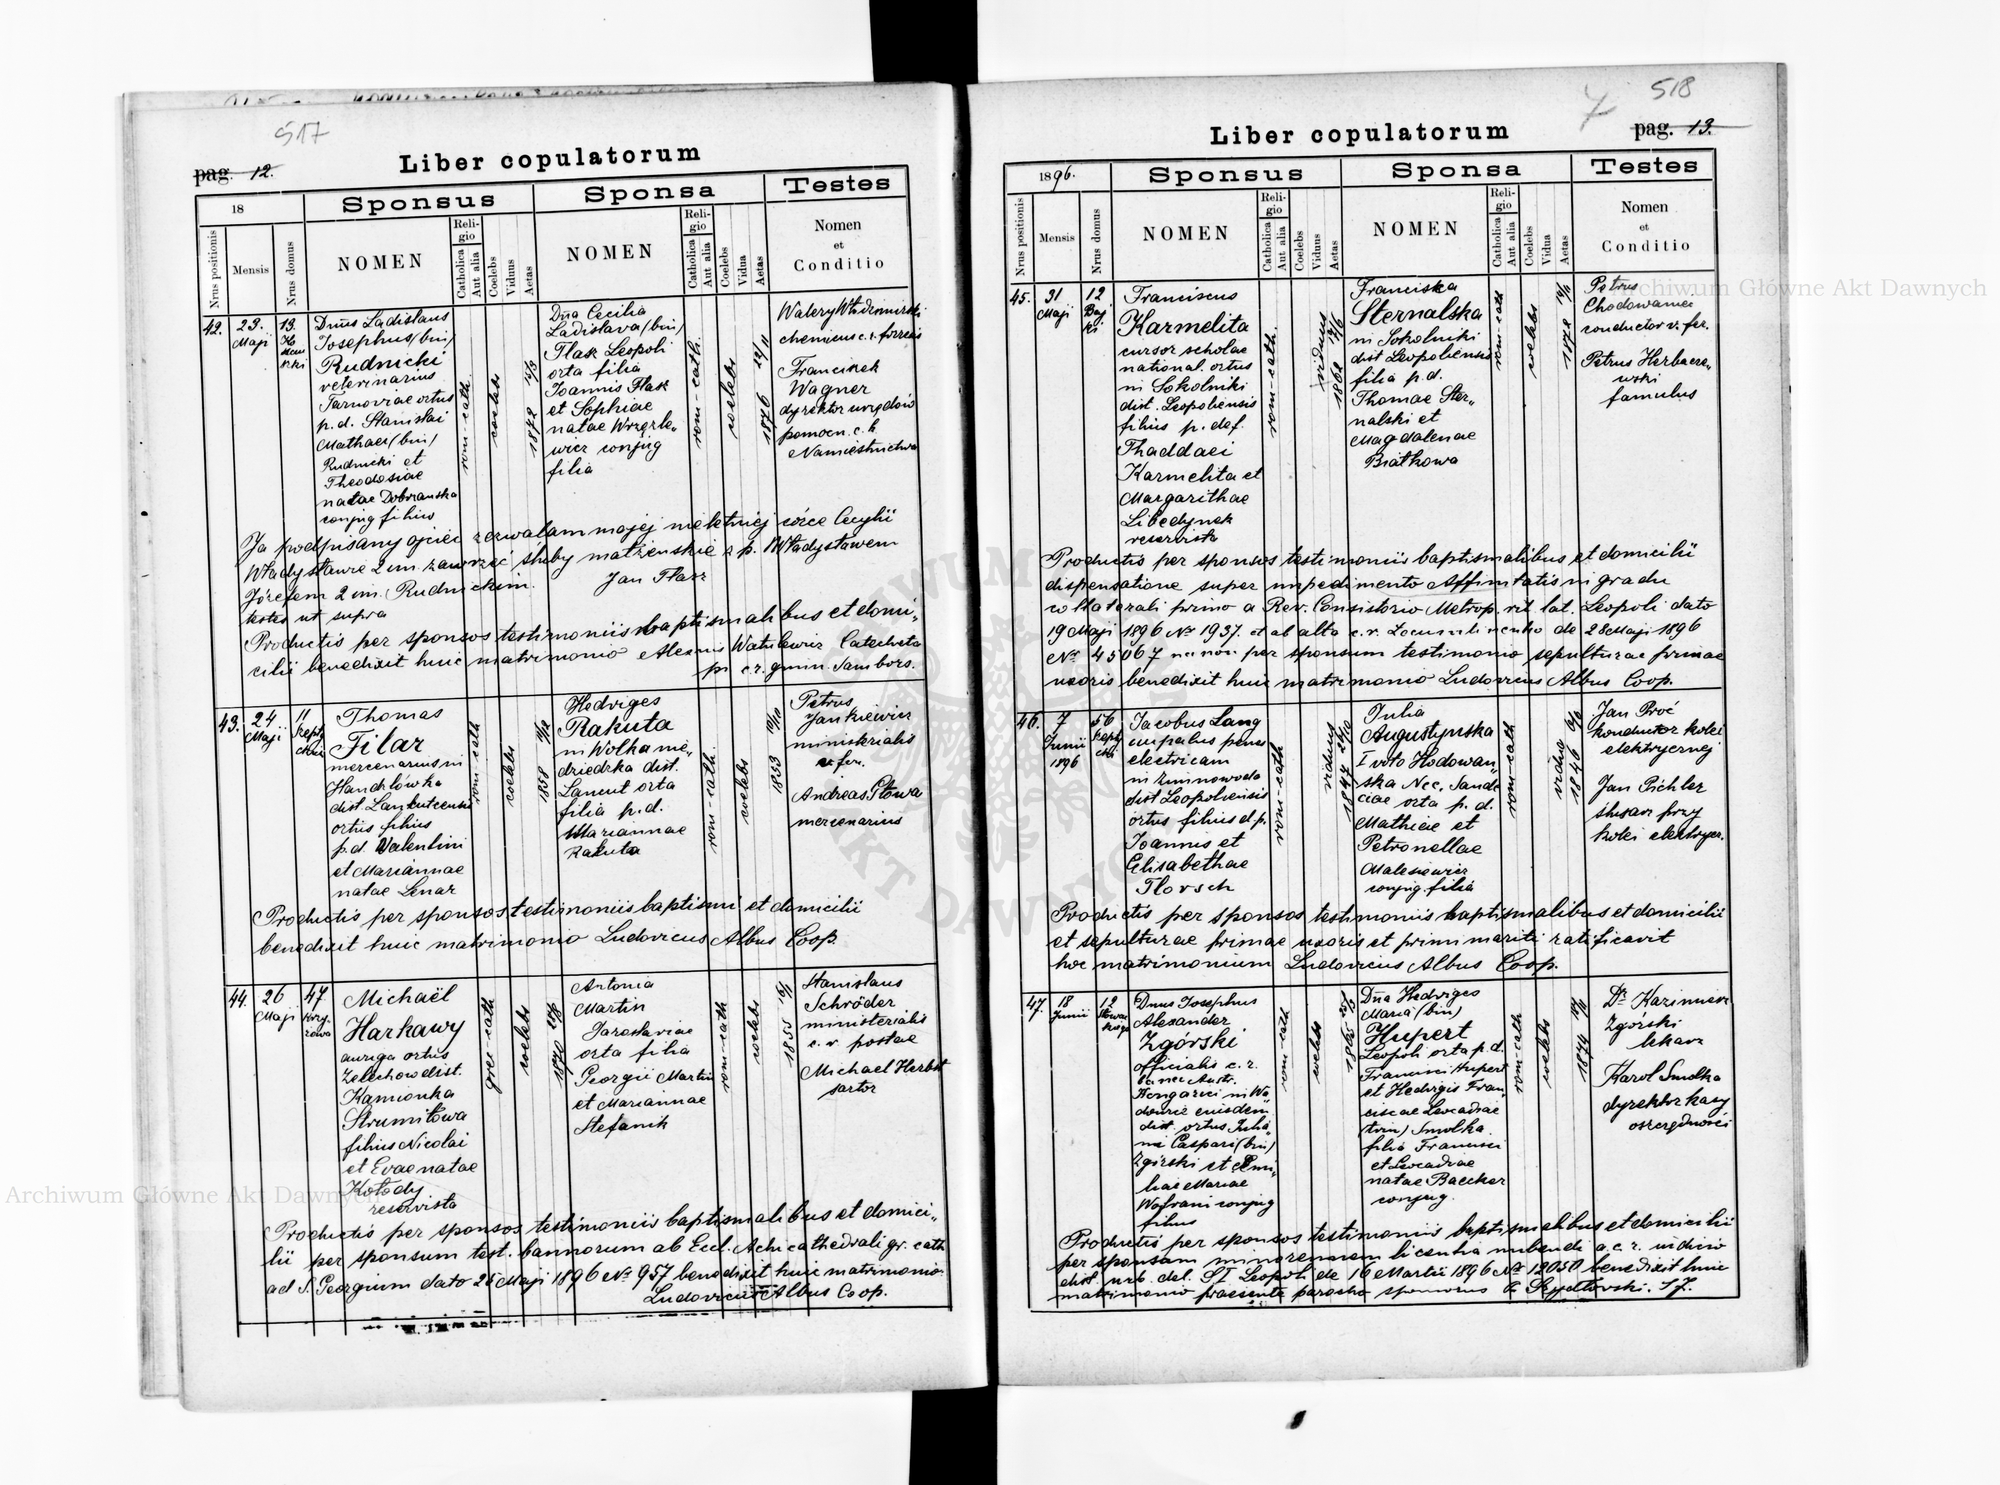 517
pag. 12.
Liber copulatorum
18
Sponsus
Sponsa
Testes
Nrus positionis
Mensis
Nrus domus
NOMEN
Religio
Catholica
Aut alia
Coelebs
Viduus
Aetas
NOMEN
Religio
Catholica
Aut alia
Coelebs
Vidua
Aetas
Nomen
et
Conditio
42.
23.
Maji
13.
Dnus Ladislaus
Josephus (bin)
Rudnicki
veterinarius
Tarnoviae ortus
p. d. Stanislai
Mathaei (bin)
Rudnicki et
Theodosiae
natae Dobrzanska
conjug filius
rom-cath.
coelebs
1872
Dna Cecilia
Ladislava (bin)
Flak Leopoli
orta filia
Joannis Flak
et Sophiae
natae
conjug
filia
rom-cath.
coelebs
1876 22/11
Walery Włodzimirski
chemicus c. r.
Franciszek
Wagner
dyrektor urzędów
pomocn. c. k.
Namiestnictwa
Ja podpisany ojciec zezwalam mojej nieletniej córce Cecylii
Władysławie 2 im. zawrzeć śluby małżeńskie z p. Władysławem
Józefem 2 im. Rudnickim.
testes ut supra
Productis per sponsos testimoniis baptismalibus et domi-
cilii benedixit huic matrimonio
c. r. gimn. Sambors.
43.
24
Maji
11
Thomas
Filar
mercenarius in
Handzlówka
dist. Lancutensis
ortus filius
p. d. Valentini
et Mariannae
natae Lenar
rom-cath
coelebs
1858
Hedviges
Rakuta
in Wolka nie-
dziedzka dist.
Lancut orta
filia p. d.
Mariannae
Rakuta
rom-cath.
coelebs
1853 10/10
Petrus
Jankiewicz
ministerialis
Andreas Słowa
mercenarius
Productis per sponsos testimoniis baptismi et domicilii
benedixit huic matrimonio Ludovicus Albus Coop.
44.
26
Maji
47
Michaël
Harkawy
auriga ortus
Zelechow dist.
Kamionka
Strumiłowa
filius Nicolai
et Evae natae
Kołody
reservista
grec-cath
coelebs
1870
Antonia
Martin
Jaroslaviae
orta filia
Georgii Martin
et Mariannae
Stefanik
rom-cath
coelebs
1855
Stanislaus
Schröder
ministerialis
c. r. postae
Michael Herbst
sartor
Productis per sponsos testimoniis baptismalibus et domici-
lii per sponsum test. bannorum ab Eccl. Achicathedrali gr. cath
ad S. Georgium dato 25 Maji 1896 No 957 benedixit huic matrimonio
Ludovicus Albus Coop.
518
7
pag. 13.
Liber copulatorum
1896.
Sponsus
Sponsa
Testes
Nrus positionis
Mensis
Nrus domus
NOMEN
Religio
Catholica
Aut alia
Coelebs
Viduus
Aetas
NOMEN
Religio
Catholica
Aut alia
Coelebs
Vidua
Aetas
Nomen
et
Conditio
45.
31
Maji
12
Baj
ki
Franciscus
Karmelita
cursor scholae
national. ortus
in Sokolniki
dist. Leopoliensis
filius p. def.
Thaddaei
Karmelita et
Margarithae
Libedynek
reservista
rom-cath.
viduus
1862
Franciska
Sternalska
in Sokolniki
dist Leopoliensis
filia p. d.
Thomae Ster-
nalski et
Magdalenae
Białkowa
rom-cath
coelebs
1872
Petrus
Chodowaniec
conductor v. fer.
Petrus Herbaczew-
wski
famulus
Productis per sponsos testimoniis baptismalibus et domicilii
dispensatione super impedimento Affinitatis in gradu
collaterali primo a Rev. Consistorio Metrop. rit lat. Leopoli dato
19 Maji 1896 No 1937. et ab alto c. r. Locumtinentio de 28 Maji 1896
No 45067 nec non per sponsum testimonio sepulturae primae
uxoris benedixit huic matrimonio Ludovicus Albus Coop.
46.
7
Junii
1896
56
Jacobus Lang
penes
electricam
in Zimnowoda
dist Leopoliensis
ortus filius d p.
Joannis et
Elisabethae
Florsch
rom-cath
viduus
1847
Julia
Augustynska
I voto Hodowan-
ska Nec. Sande-
ciae orta p. d.
Mathiae et
Petronellae
Malesiewicz
conjug. filia
rom-cath
vidua
1846
Jan Proć
konduktor kolei
elektrycznej
Jan Pichler
ślusarz przy
kolei elektrycz.
Productis per sponsos testimoniis baptismalibus et domicilii
et sepulturae primae uxoris et primi mariti ratificavit
hoc matrimonium Ludovicus Albus Coop.
47.
18
Junii
12
Dnus Josephus
Alexander
Zgórski
officialis c. r.
Austr.
Hongarici in Wa-
dowice eiusdem
dist. ortus Julia-
ni Caspari (bin)
Zgórski et Emi-
liae Mariae
Wofrani conjug
filius
rom-cath
coelebs
1865
Dna Hedviges
Maria (bin)
Hupert
Leopoli orta p. d.
Francisci Hupert
et Hedvigis Fran-
ciscae Leocadiae
(trin) Smolka
filia Francisci
et Leocadiae
natae Baecker
conjug.
rom-cath
coelebs
1874
Dr Kazimierz
Zgórski
lekarz
Karol Smolka
dyrektor kasy
oszczędności
Productis per sponsos testimoniis baptismalibus et domicilii
per sponsam minorennem licentia nubendi a c. r. iudicio
dist. urb. del. SI Leopoli de 16 Martii 1896 No 12050 benedixit huic
matrimonio praesente parocho sponsorum
Archiwum Główne Akt Dawnych
Archiwum Główne Akt Dawnych